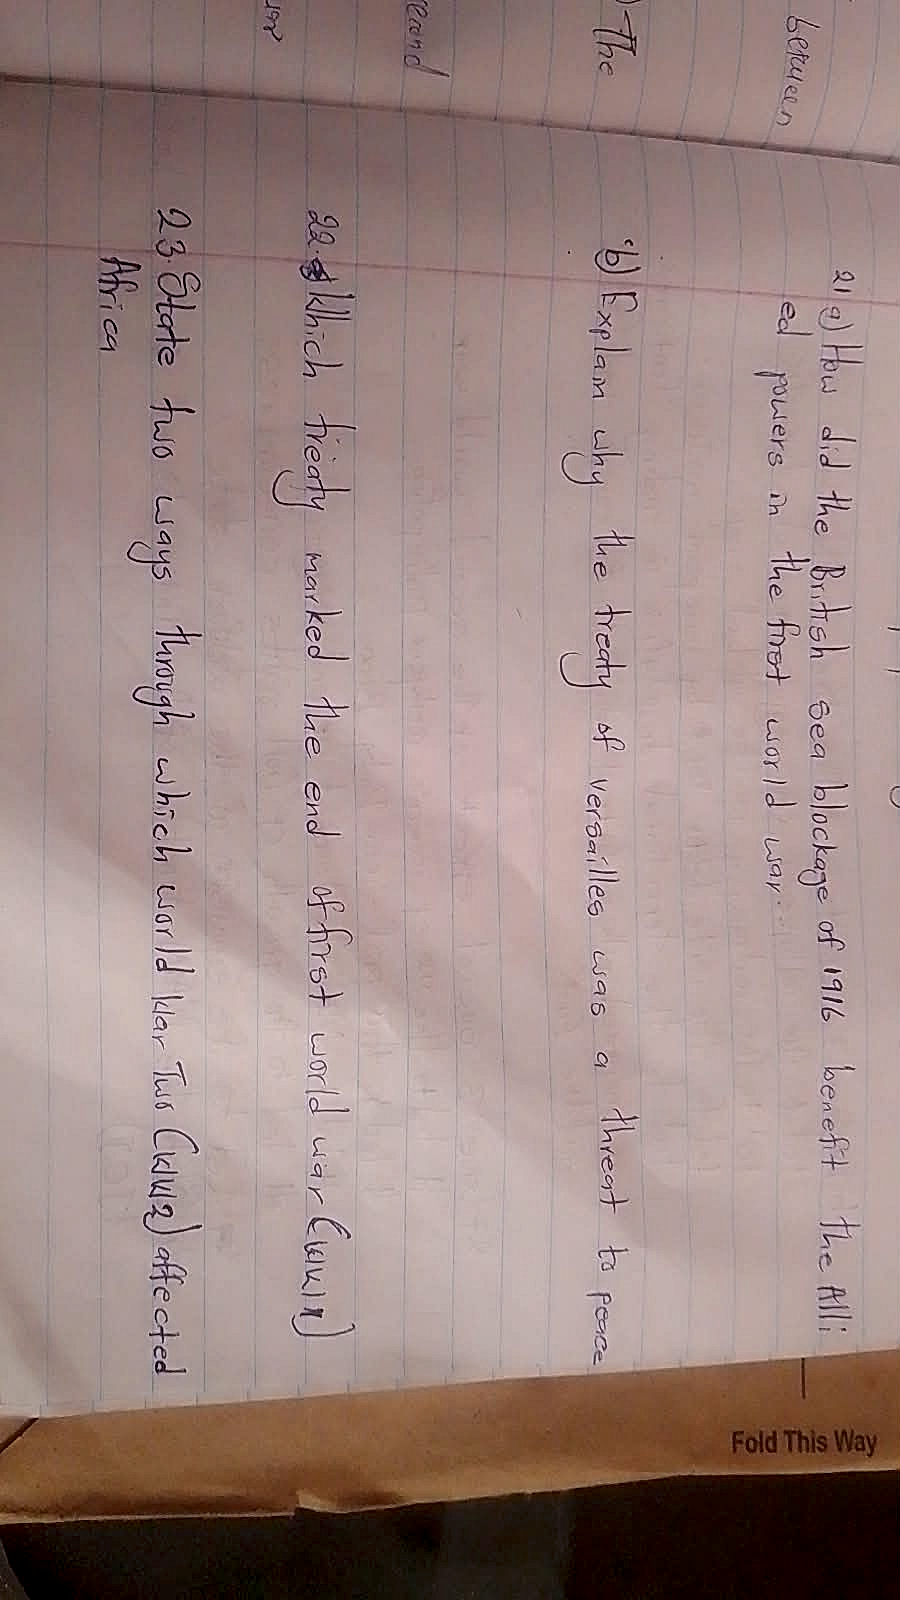 between
) The
econd
21 a) How did the British sea blockage of 1916 benefit the Alli
ed powers in the first world war.
b) Explain why the treaty of versailles was a threat to peace
22. Which treaty marked the end of first world war (WW1)
23. State two ways through which world War Two (WW2) affected
Africa
Fold This Way